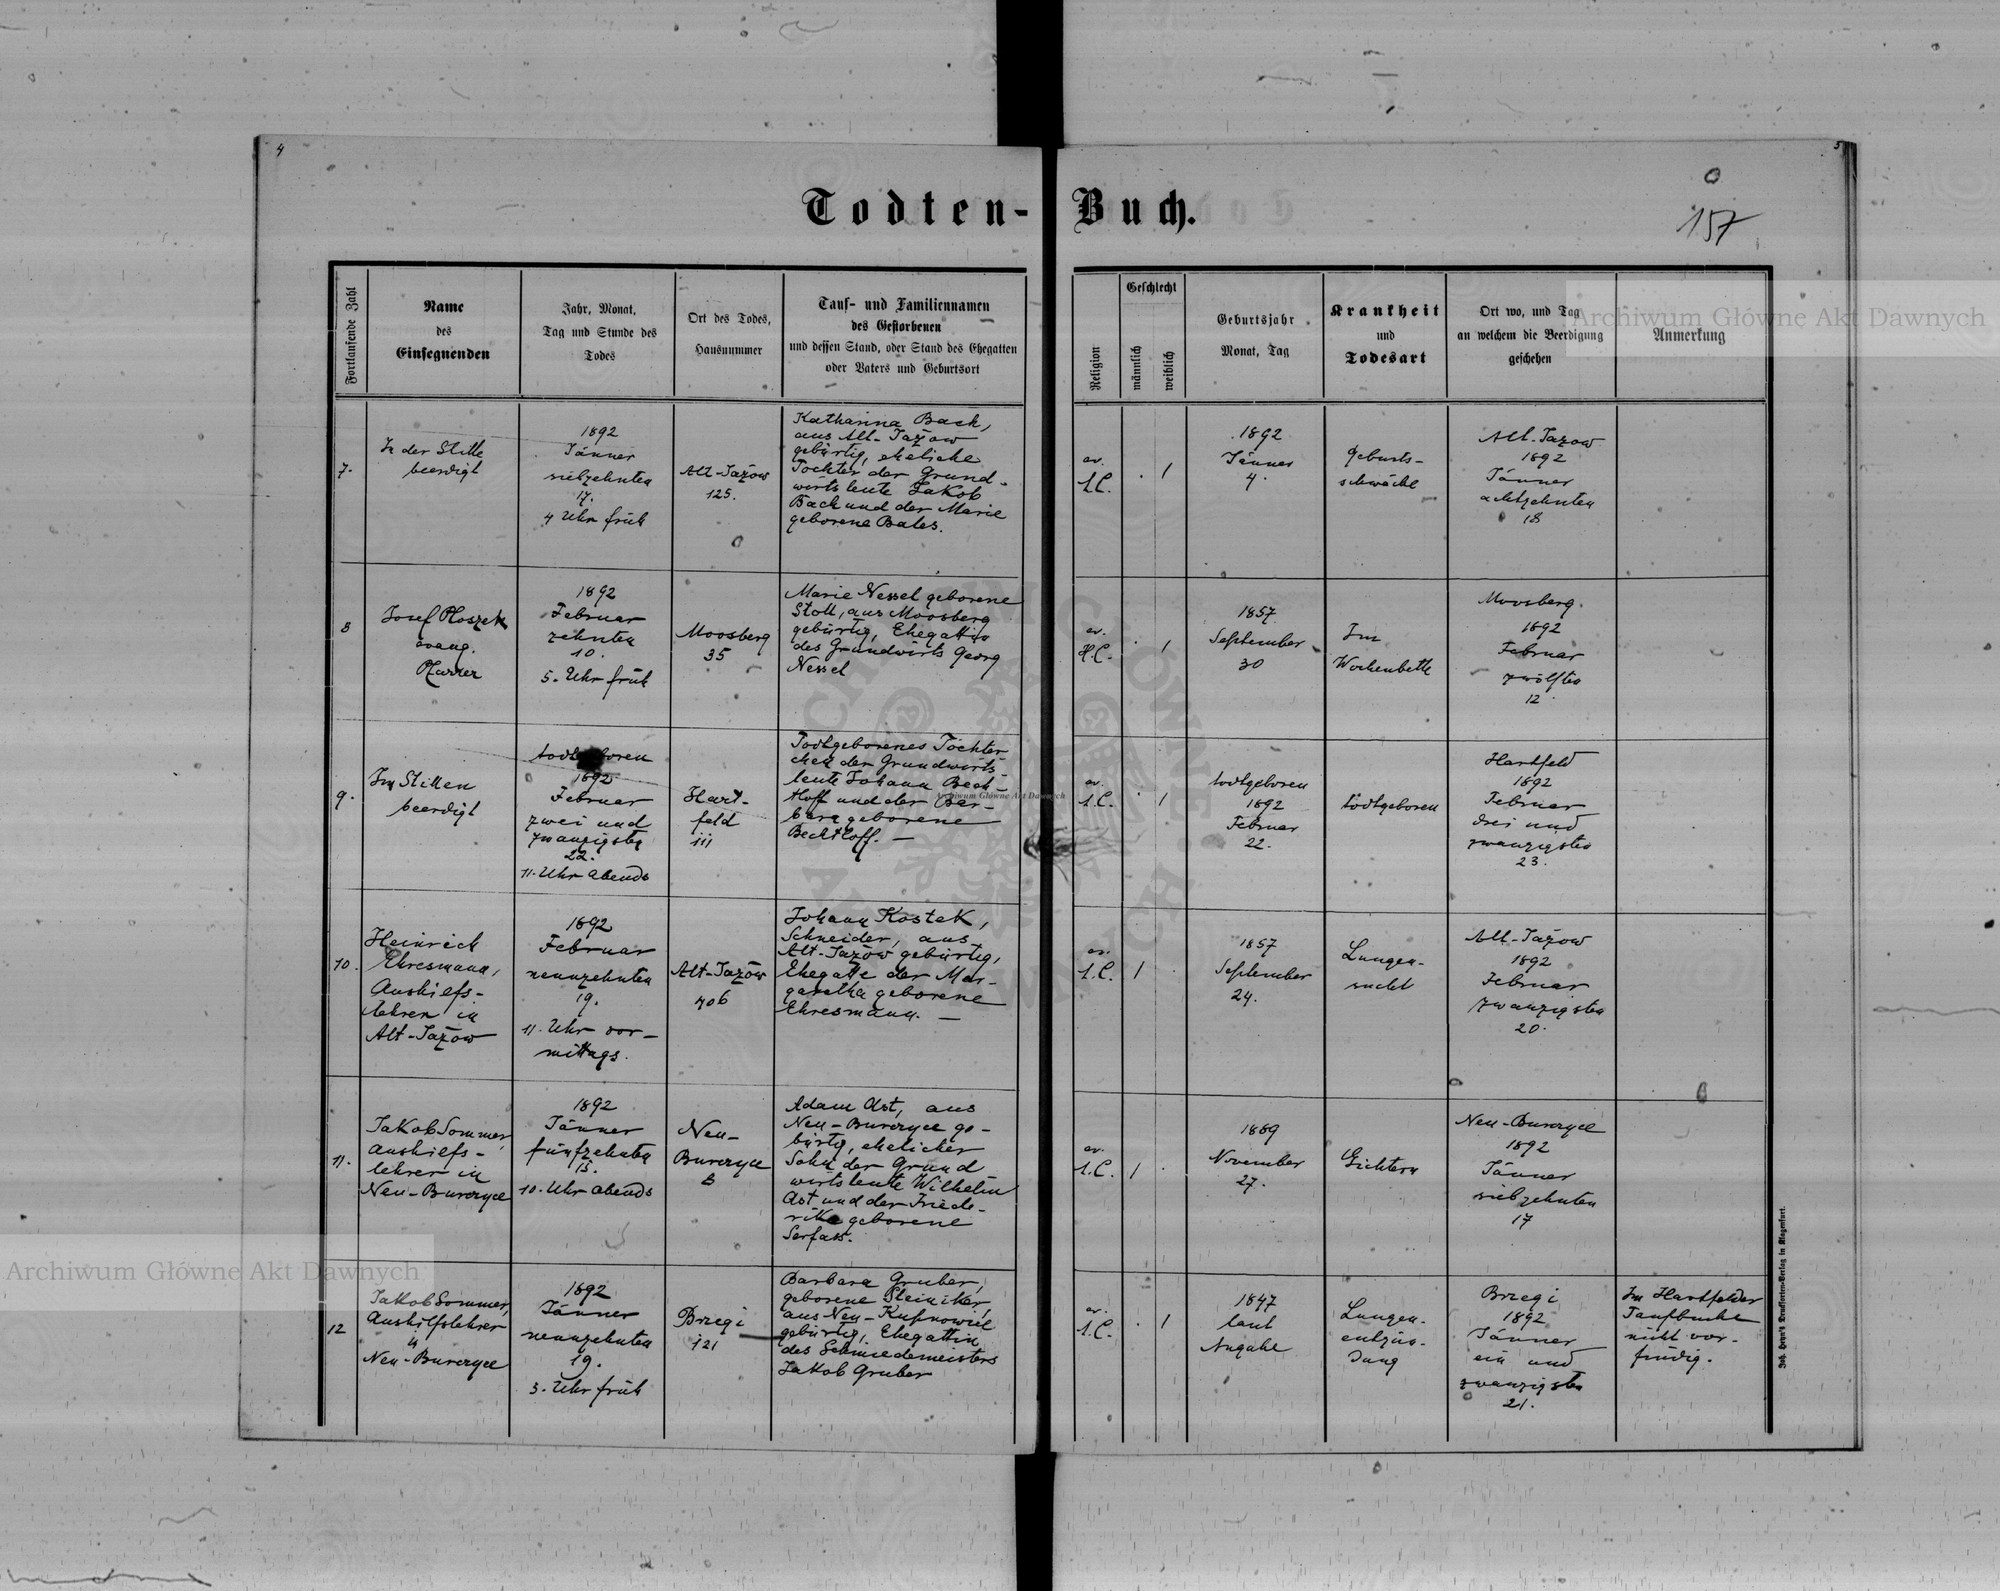 4
5
Todten-Buch.
157
Fortlaufende Zahl
Name
des
Einsegnenden
Jahr, Monat,
Tag und Stunde des
Todes
Ort des Todes,
Hausnummer
Tauf- und Familiennamen
des Gestorbenen
und dessen Stand, oder Stand des Ehegatten
oder Vaters und Geburtsort
Religion
Geschlecht
männlich
weiblich
Geburtsjahr
Monat, Tag
Krankheit
und
Todesart
Ort wo, und Tag
an welchem die Beerdigung
geschehen
Anmerkung
7.
In der Stille
beerdigt
1892
Jänner
siebzehnten
17.
4 Uhr früh
Alt-Jażow
125.
Katharina Bach,
aus Alt-Jażow
gebürtig, eheliche
Tochter der Grund-
wirtsleute Jakob
Bach und der Marie
geborene Bales.
ev.
A.C.
1
1892
Jänner
4.
Geburts-
schwäche
Alt-Jazow
1892
Jänner
achtzehnten
18
8
Josef Ploszek
evang.
Pfarrer
1892
Februar
zehnten
10.
5. Uhr früh
Moosberg
35
Marie Nessel geborene
Stoll, aus Moosberg
gebürtig, Ehegattin
des Grundwirts Georg
Nessel
ev.
H.C.
1
1857
September
30
Im
Wochenbette
Moosberg.
1892
Februar
zwölften
12.
9.
Im Stillen
beerdigt
todtgeboren
1892
Februar
zwei und
zwanzigsten
22.
11. Uhr abends
Hart-
feld
111
Todtgeborenes Töchter
chen der Grundwirts-
leute Johann Bech-
tloff und der Bar-
bara geborene
Bechtloff. —
ev.
A.C.
1
todtgeboren
1892
Februar
22.
todtgeboren
Hartfeld
1892
Februar
drei und
zwanzigsten
23.
10.
Heinrich
Ehresmann,
Aushilfs-
lehrer in
Alt-Jażow
1892
Februar
neunzehnten
19.
11. Uhr vor-
mittags.
Alt-Jażow
106
Johann Kostek,
Schneider, aus
Alt-Jażow gebürtig,
Ehegatte der Mar-
garetha geborene
Ehresmann. —
ev.
A.C.
1
1857
September
24.
Lungen-
sucht
Alt-Jażow
1892
Februar
zwanzigsten
20.
11.
Jakob Sommer,
Aushilfs-
lehrer in
Neu-Burczyce
1892
Jänner
fünfzehnten
15.
10. Uhr abends
Neu-
Burczyce
8
Adam Ast, aus
Neu-Burczyce ge-
bürtig, ehelicher
Sohn der Grund
wirtsleute Wilhelm
Ast und der Friede-
rike geborene
Serfass.
ev.
A.C.
1
1889
November
27.
Gichtern
Neu-Burczyce
1892
Jänner
siebzehnten
17
12
Jakob Sommer,
Aushilfslehrer
in
Neu-Burczyce
1892
Jänner
neunzehnten
19.
3. Uhr früh
Brzegi
121
Barbara Gruber,
geborene Steiniker,
aus Neu-Kupnowice
gebürtig, Ehegattin
des Schmiedemeisters
Jakob Gruber
ev.
A.C.
1
1847
laut
Angabe
Lungen-
entzün-
dung
Brzegi
1892
Jänner
ein und
zwanzigsten
21.
Im Hartfelder
Taufbuche
nicht vor-
findig.
Joh. Heyn's Drucksorten-Verlag in Klagenfurt.
Archiwum Główne Akt Dawnych
Archiwum Główne Akt Dawnych
Archiwum Główne Akt Dawnych